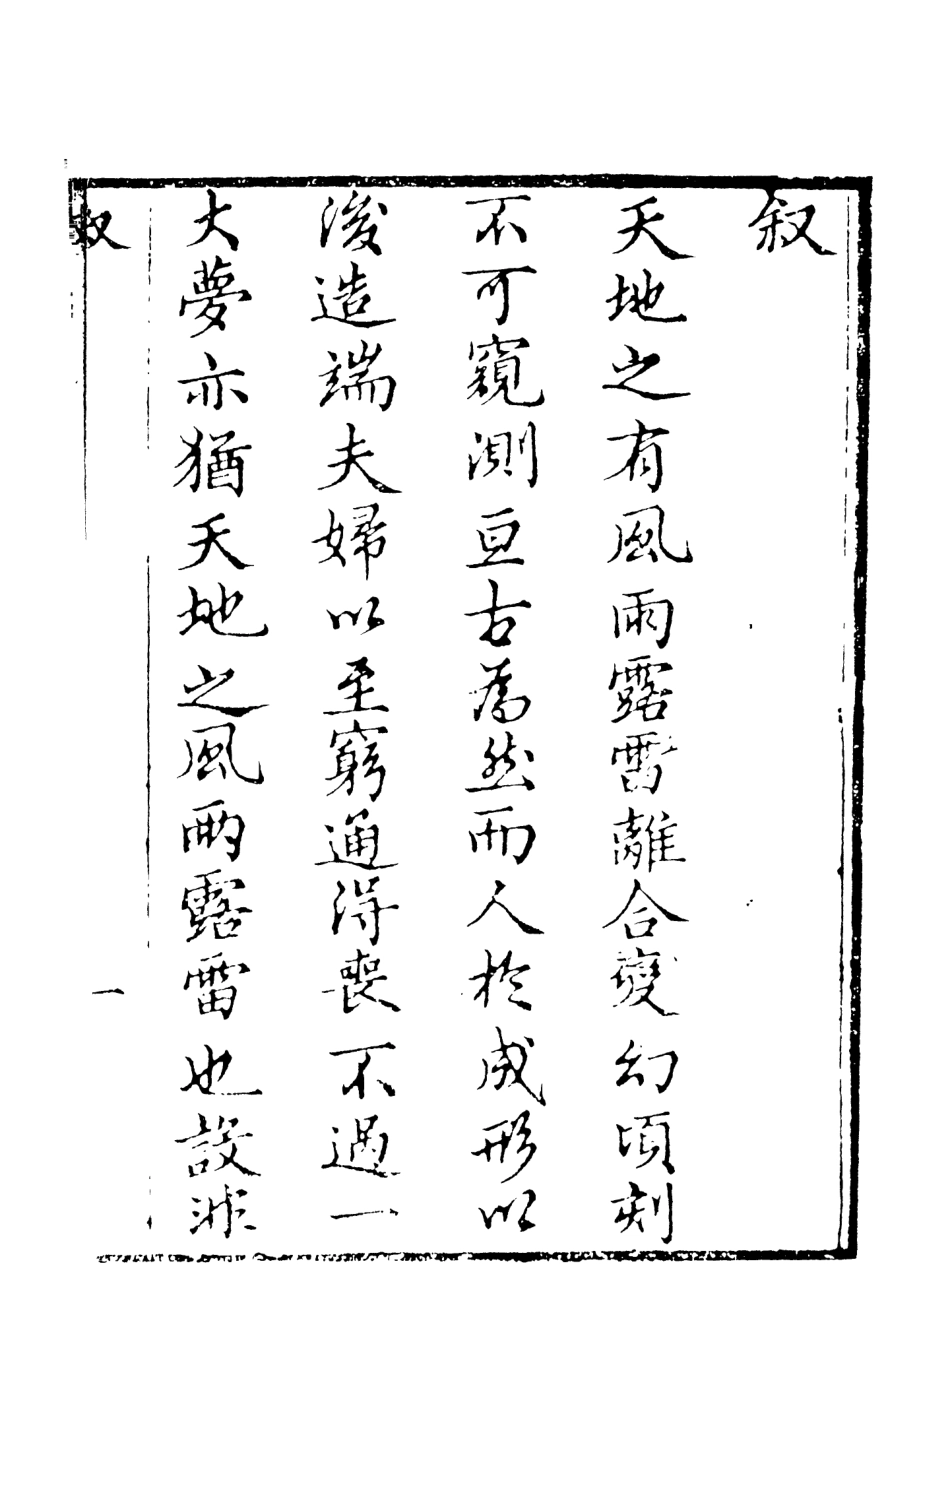 叙
天地之有風雨露雷離合變幻頃刻
不可窺測亘古為然而人於成形以
後造端夫婦以至窮通得喪不過一
大夢亦猶天地之風雨露雷也設非
叙
一